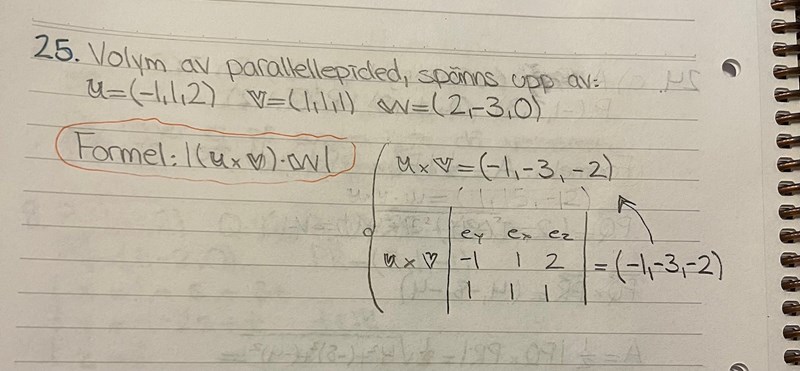 25. Volym av parallellepided, spänns upp av:
u=(-1,1,2) v=(1,1,1) w=(2,-3,0)
Formel: |(u×v)·w|
u×v=(-1,-3,-2)
ey ex ez
u×v | -1 1 2 | =(-1,-3,-2)
1 1 1